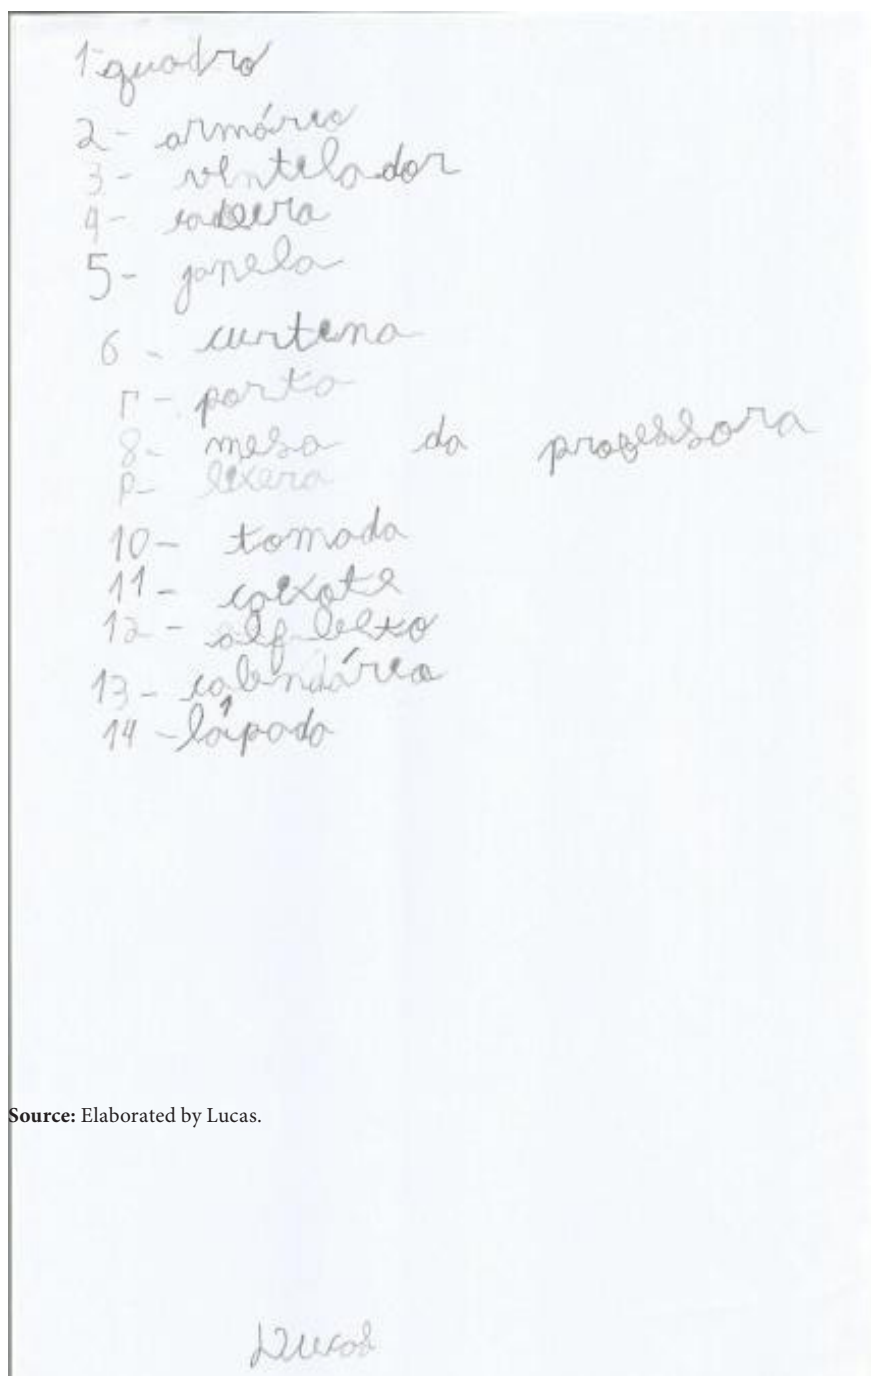 1-quadro
2- armário
3- ventilador
4- cadeira
5- janela
6 - curtena
7- porta
8- mesa da professora
9- lixera
10- tomada
11- caixote
12- alfbeto
13- calendário
14-lápada
Source: Elaborated by Lucas.
Lucas